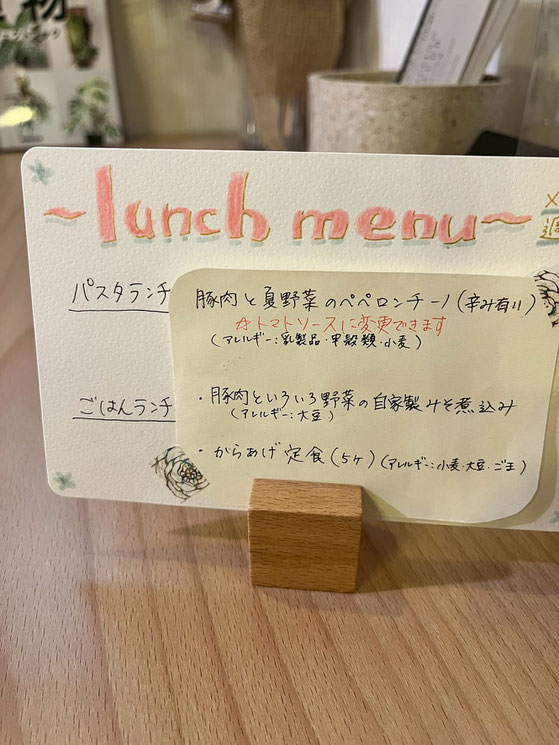 物
~lunch menu~
パスタランチ
豚肉と夏野菜のペペロンチーノ(辛み有り)
☆トマトソースに変更できます
(アレルギー:乳製品・甲殻類・小麦)
ごはんランチ
・豚肉といろいろ野菜の自家製みそ煮込み
(アレルギー:大豆)
・からあげ定食(5ヶ)(アレルギー:小麦・大豆・ごま)